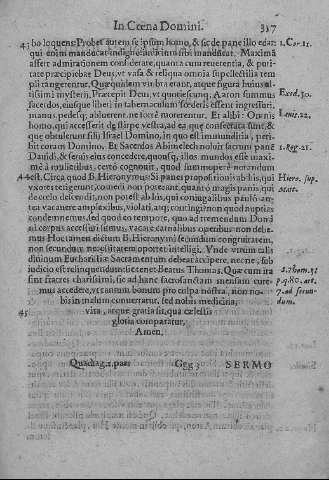 In Cœna Domini. 337
43 ho loquens: Probet autem se ipsum homo, & sic de pane illo edat: 1. Cor. 11.
qui enim manducat indigne judicium sibi manducat. Maximã
affert admirationem considerare, quanta cum reuerentia, & puri-
tate præcipiebat Deus, vt vasa & reliqua omnia supellectilia tem
pli tangerentur. Quæ quidem vmbra erant, atque figura huius al-
tissimi mysterij. Præcepit Deus, vt quoties[]cunq; Aaron summus Exod. 30.
sacerdos, eiusque liberi in tabernaculum fœderis essent ingressuri,
manus pedesq; abluerent, ne forte morerentur. Et alibi: Omnis Leuit. 22.
homo, qui accesserit de stirpe vestra, ad ea quæ consecrata sunt, &
quæ obtulerunt filij Israel Domino, in quo est immunditia, peri-
bit coram Domino. Et Sacerdos Abimelech noluit sacrum panẽ 1. Reg. 21.
Dauidi, & socijs eius concedere, quousq; illos mundos esse maxi-
mè à mulieribus, certò cognouit, quod summopere notandum
44 est. Circa quod B. Hieronymus: Si panes propositionis ab his, qui Hiero. sup.
vxores tetigerant, comedi non poterant, quanto magis panis, qui Mat.
de cœlo descendit, non potest ab his, qui coniugalibus paulò an-
tea vacauere amplexibus, violari, atq; contingi: non quod nuptias
condemnemus, sed quod eo tempore, quo ad tremendum Domini
corpus accessuri sumus, vacare carnalibus operibus non debe-
mus. Hoc tamen dictum B. Hieronymi secundum congruitatem,
non secundum necessitatem oportet intelligi. Vnde vtrum talis
diuinum Eucharistiæ Sacramentum debeat accipere, necne, sub
iudicio est relinquendum: sic tenet Beatus Thomas. Quæ cum ita D. Thom. 3.
sint fratres charissimi, sic ad hanc sacrosanctam mensam curre- p. q. 80. art.
mus accedere, vt tantum bonum pro culpa nostra, non no- 7. ad secun-
bis in malum conuertatur, sed nobis medicina, dum.
45 vita, atque gratia sit, qua cœlestis
gloria comparatur.
Amen.
Quadrag. 2. par. Ggg 3 SERMO